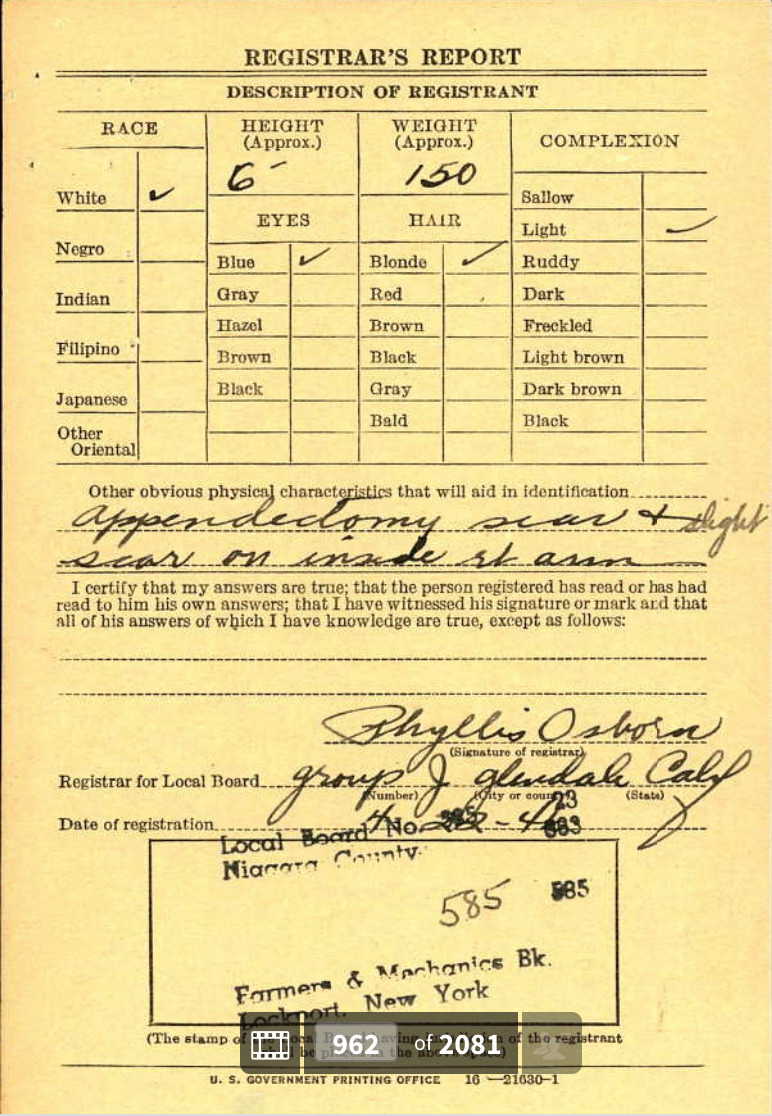 REGISTRAR'S REPORT
DESCRIPTION OF REGISTRANT
RACE
HEIGHT
(Approx.)
WEIGHT
(Approx.)
COMPLEXION
6
150
White ✓
Negro
Indian
Filipino
Japanese
Other
Oriental
EYES
Blue ✓
Gray
Hazel
Brown
Black
HAIR
Blonde ✓
Red
Brown
Black
Gray
Bald
Sallow
Light ✓
Ruddy
Dark
Freckled
Light brown
Dark brown
Black
Other obvious physical characteristics that will aid in identification
appendectomy scar & slight
scar on inside rt arm
I certify that my answers are true; that the person registered has read or has had
read to him his own answers; that I have witnessed his signature or mark and that
all of his answers of which I have knowledge are true, except as follows:
Phyllis Osborn
(Signature of registrar)
Registrar for Local Board group J glendale Calif
(Number) (City or county) (State)
Date of registration
Local Board No. 23
Niagara County
583
585 585
Farmers & Mechanics Bk.
Lockport, New York
(The stamp of the Local of the registrant
be the above
962 of 2081
U. S. GOVERNMENT PRINTING OFFICE 16—21630-1